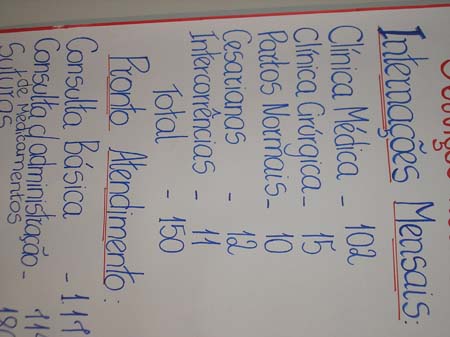 Internações Mensais:
Clínica Médica - 102
Clínica Cirúrgica - 15
Partos Normais - 10
Cesarianas - 12
Intercorrências - 11
Total - 150
Pronto Atendimento:
Consulta Básica -
Consulta d administração -
de Medicamentos
Suturas